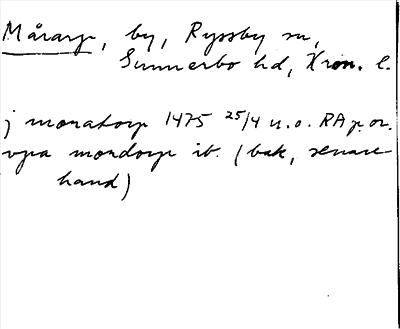 Mårarp, by, Ryssby sn,
Sunnerbo hd, Kron. l.
j moratorp 1475 25/4 u.o. RA p. or.
vpa mordorp ib. (bak, senare
hand)